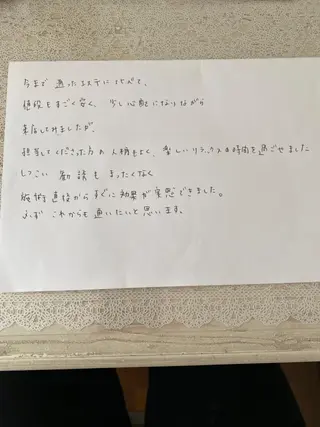 今まで通ったエステに比べて、
値段もすごく安く、少し心配になりながら
来店してみましたが、
担当してくださった方の人柄もよく、楽しいリラックスの時間を過ごせました
しつこい勧誘もまったくなく
施術直後からすぐに効果が実感できました。
必ずこれからも通いたいと思います。